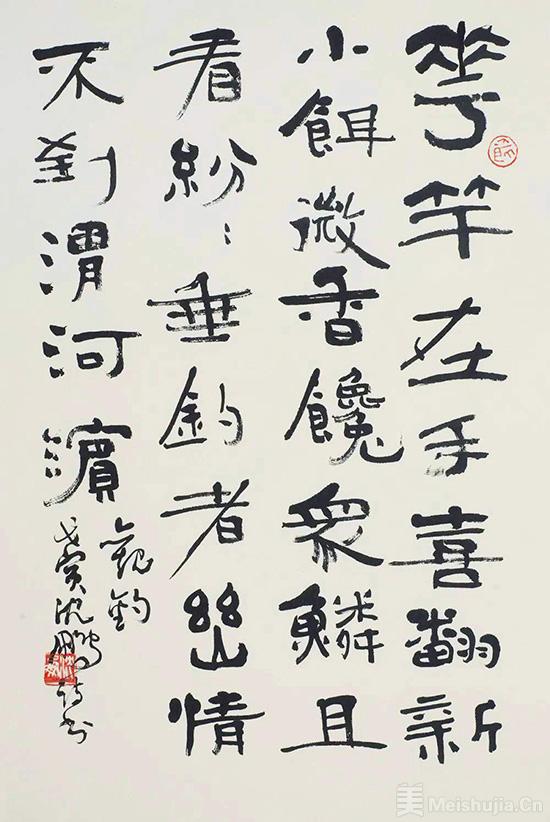 華竿在手喜翻新
小餌微香饞衆鱗且
看紛〻垂釣者幽情
不到渭河濱
觀釣
戊寅沈鵬詩書
美 Meishujia.Cn